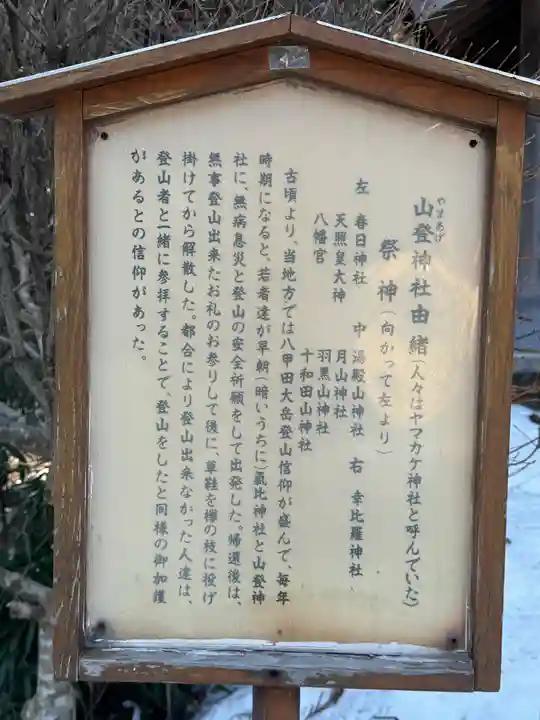 山登神社由緒(人々はヤマカケ神社と呼んでいた)
やまあげ
祭神(向かって左より)
左 春日神社 中 湯殿山神社 右 幸比羅神社
天照皇大神 月山神社
八幡宮 羽黒山神社
十和田山神社
古頃より、当地方では八甲田大岳登山信仰が盛んで、毎年
時期になると、若者達が早朝(暗いうちに)氣比神社と山登神
社に、無病息災と登山の安全祈願をして出発した。帰還後は、
無事登山出来たお礼のお参りして後に、草鞋を欅の枝に投げ
掛けてから解散した。都合により登山出来なかった人達は、
登山者と一緒に参拝することで、登山をしたと同様の御加護
があるとの信仰があった。